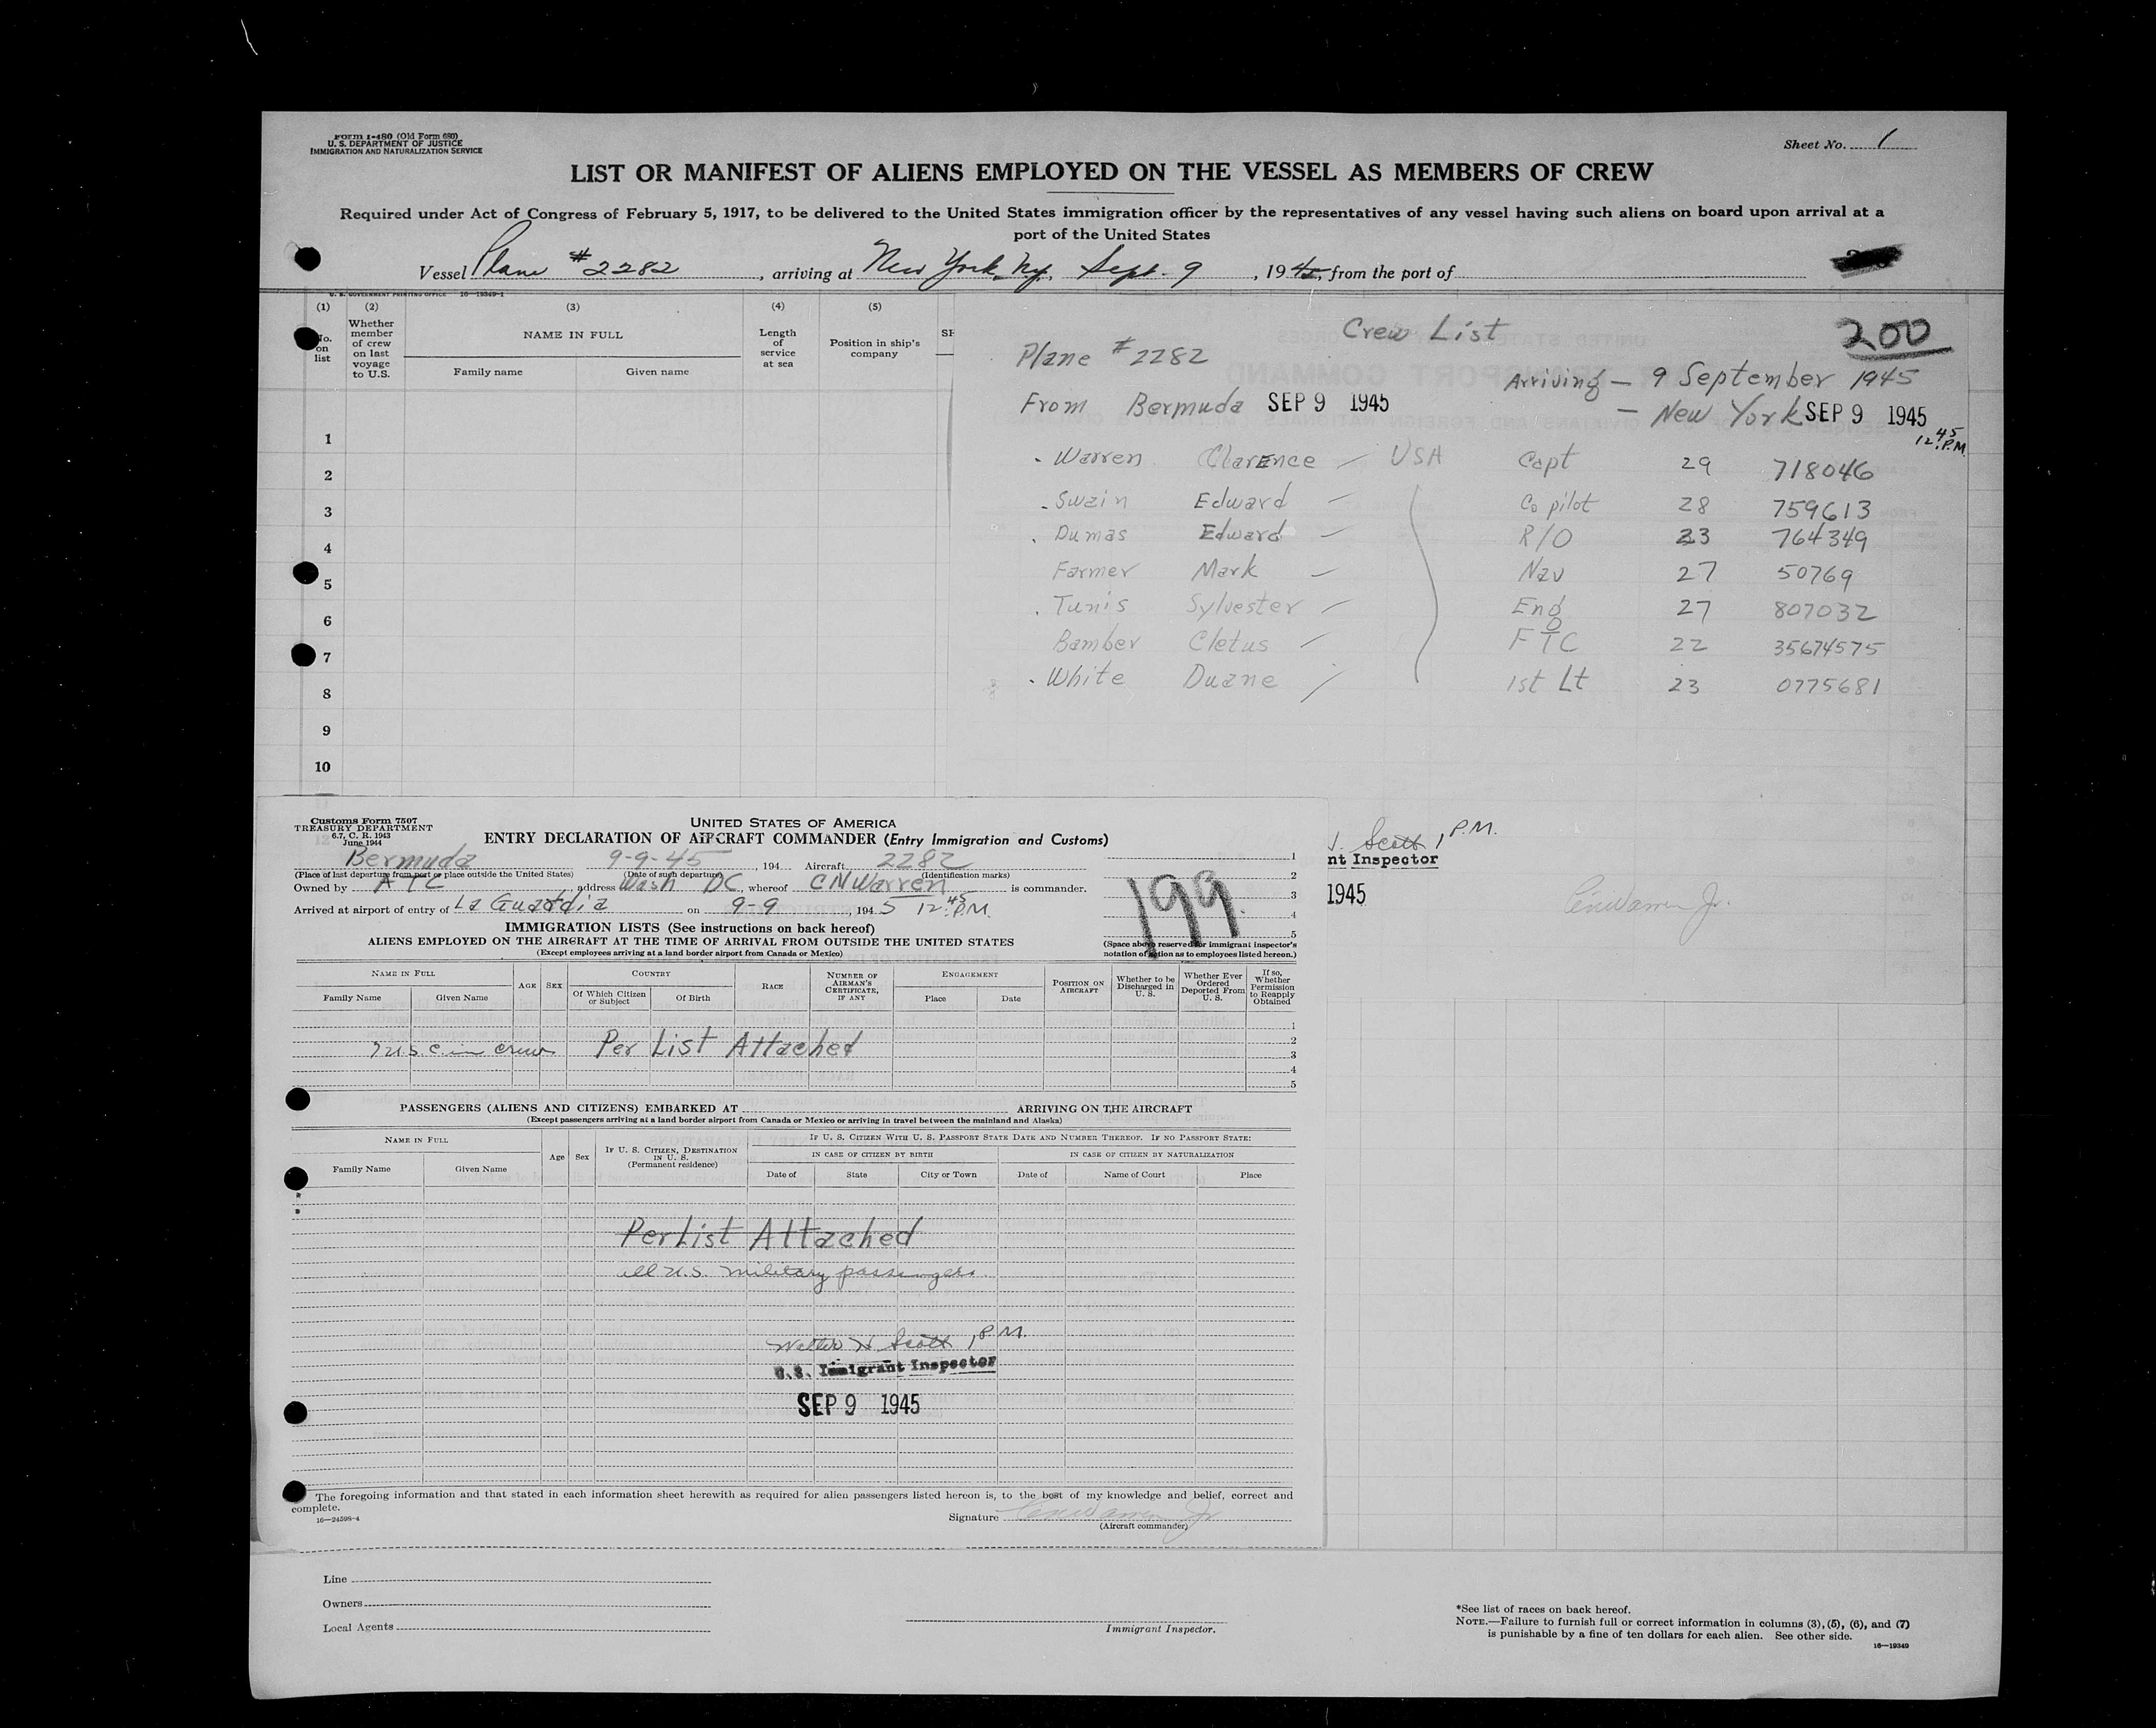 Form I-480 (Old Form 680)
U. S. DEPARTMENT OF JUSTICE
IMMIGRATION AND NATURALIZATION SERVICE
Sheet No. 1
LIST OR MANIFEST OF ALIENS EMPLOYED ON THE VESSEL AS MEMBERS OF CREW
Required under Act of Congress of February 5, 1917, to be delivered to the United States immigration officer by the representatives of any vessel having such aliens on board upon arrival at a
port of the United States
Vessel Plane #2282, arriving at New York, Ny. Sept. 9, 1945, from the port of
U. S. GOVERNMENT PRINTING OFFICE 16—19349-1
(1) (2) (3) (4) (5)
No. on list
Whether member of crew on last voyage to U.S.
NAME IN FULL
Family name Given name
Length of service at sea
Position in ship's company
1
2
3
4
5
6
7
8
9
10
Crew List
200
Plane #2282
Arriving — 9 September 1945
From Bermuda SEP 9 1945
— New York SEP 9 1945
12:45 P.M.
Warren Clarence — USA Capt 29 718046
Swain Edward — Co pilot 28 759613
Dumas Edward — R/O 23 764349
Farmer Mark — Nav 27 50769
Tunis Sylvester — Eng 27 807032
Bamber Cletus — FTC 22 35674575
White Duane / 1st Lt 23 0775681
Scott, P.M.
nt Inspector
1945
CNWarren Jr.
Customs Form 7507
TREASURY DEPARTMENT
6.7, C. R. 1943
June 1944
UNITED STATES OF AMERICA
ENTRY DECLARATION OF AIRCRAFT COMMANDER (Entry Immigration and Customs)
Bermuda 9-9-45, 194 Aircraft 2282
(Place of last departure from port or place outside the United States) (Date of such departure) (Identification marks)
Owned by ATC, address Wash DC, whereof CNWarren is commander.
Arrived at airport of entry of La Guardia on 9-9, 1945 12:45 P.M.
1
2
3
4
5
199.
(Space above reserved for immigrant inspector's notation of action as to employees listed hereon.)
IMMIGRATION LISTS (See instructions on back hereof)
ALIENS EMPLOYED ON THE AIRCRAFT AT THE TIME OF ARRIVAL FROM OUTSIDE THE UNITED STATES
(Except employees arriving at a land border airport from Canada or Mexico)
NAME IN FULL
Family Name Given Name
AGE SEX
COUNTRY
Of Which Citizen or Subject Of Birth
RACE
NUMBER OF AIRMAN'S CERTIFICATE, IF ANY
ENGAGEMENT
Place Date
POSITION ON AIRCRAFT
Whether to be Discharged in U. S.
Whether Ever Ordered Deported From U. S.
If so, Whether Permission to Reapply Obtained
1
2
3
4
5
7 U.S.C. in crew Per List Attached
PASSENGERS (ALIENS AND CITIZENS) EMBARKED AT ARRIVING ON THE AIRCRAFT
(Except passengers arriving at a land border airport from Canada or Mexico or arriving in travel between the mainland and Alaska)
NAME IN FULL
Family Name Given Name
Age Sex
IF U. S. CITIZEN, DESTINATION IN U. S.
(Permanent residence)
IF U. S. CITIZEN WITH U. S. PASSPORT STATE DATE AND NUMBER THEREOF. IF NO PASSPORT STATE:
IN CASE OF CITIZEN BY BIRTH IN CASE OF CITIZEN BY NATURALIZATION
Date of State City or Town Date of Name of Court Place
Per List Attached
all U.S. military passengers.
Walter W Scott, P.M.
U.S. Immigrant Inspector
SEP 9 1945
The foregoing information and that stated in each information sheet herewith as required for alien passengers listed hereon is, to the best of my knowledge and belief, correct and
complete.
16—24598-4
Signature CNWarren Jr
(Aircraft commander)
Line
Owners
Local Agents
Immigrant Inspector.
*See list of races on back hereof.
NOTE.—Failure to furnish full or correct information in columns (3), (5), (6), and (7)
is punishable by a fine of ten dollars for each alien. See other side.
16—19349